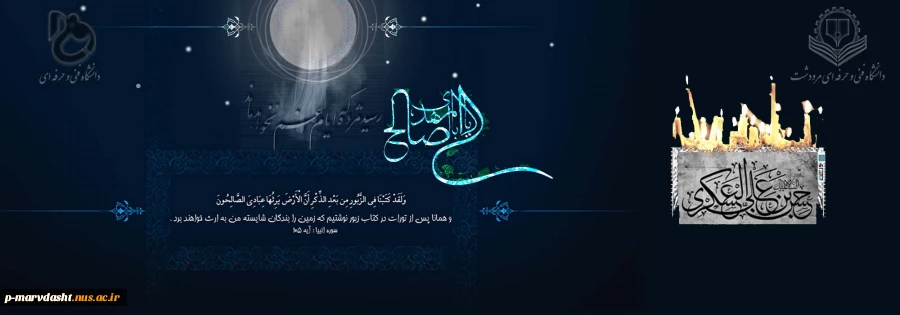 دانشگاه فنی و حرفه ای مرودشت
دانشگاه فنی و حرفه ای
رسید مژده که ایام غم نخواهد ماند
یا اباصالح المهدی
حسن بن علی العسکری
وَلَقَدْ كَتَبْنَا فِی الزَّبُورِ مِن بَعْدِ الذِّكْرِ أَنَّ الْأَرْضَ يَرِثُهَا عِبَادِیَ الصَّالِحُونَ
و همانا پس از تورات در کتاب زبور نوشتیم که زمین را بندگان شایسته من به ارث خواهند برد .
سوره انبیا : آیه ۱۰۵
p-marvdasht.nus.ac.ir